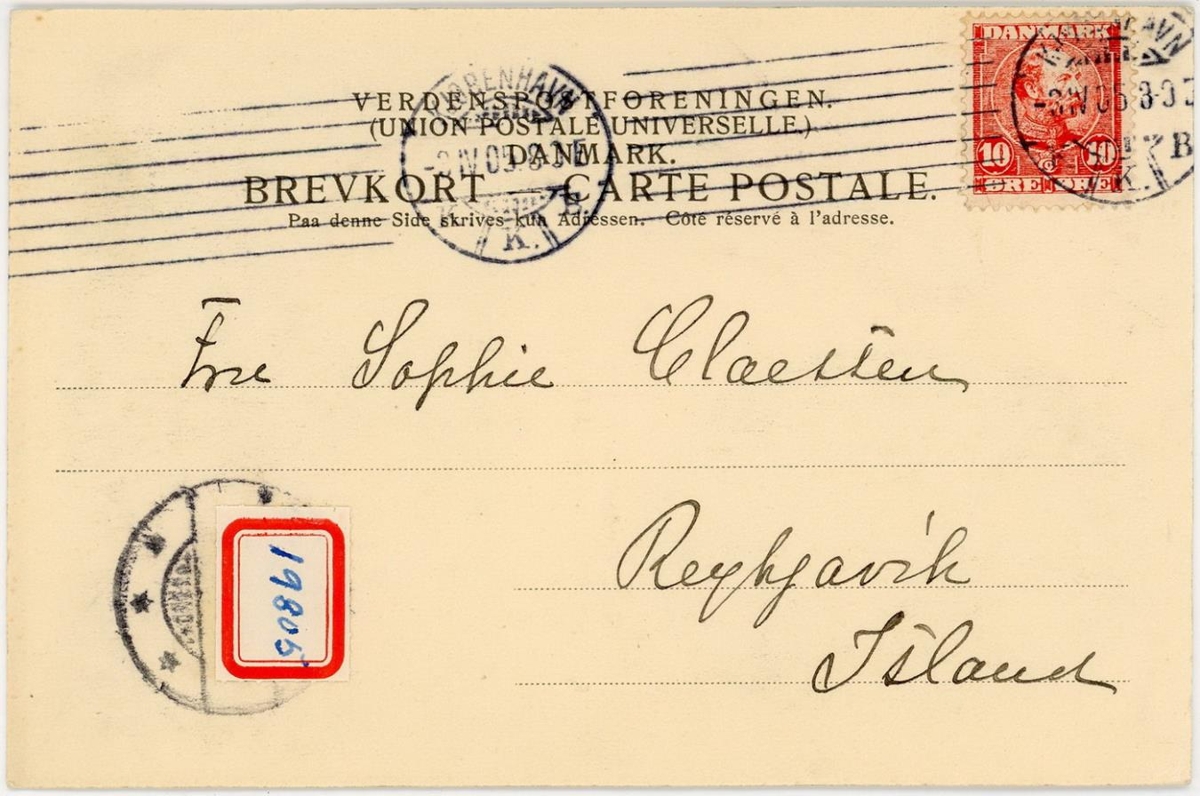 VERDENSPOSTFORENINGEN.
(UNION POSTALE UNIVERSELLE.)
DANMARK.
BREVKORT — CARTE POSTALE.
Paa denne Side skrives kun Adressen. Côté réservé à l'adresse.
KJØBENHAVN
K.
DANMARK
10 10
ØRE
B
K.
Fru Sophie Claessen
Reykjavík
Ísland
19805